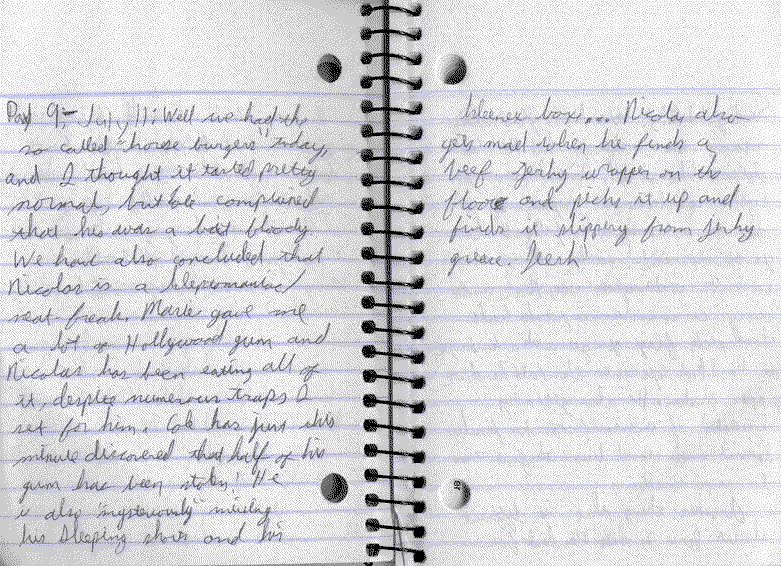 Day 9;- July 11; Well we had the
so called "horse burgers" today,
and I thought it tasted pretty
normal, but Cole complained
that his was a bit bloody.
We have also concluded that
Nicolas is a kleptomaniac/
neat-freak. Marie gave me
a lot of Hollywood gum and
Nicolas has been eating all of
it, despite numerous traps I
set for him. Cole has just this
minute discovered that half of his
gum has been stolen! He
is also "mysteriously" missing
his sleeping shirt and his
kleenex box... Nicolas also
gets mad when he finds a
beef jerky wrapper on the
floor and picks it up and
finds it slippery from jerky
grease. Jeesh!